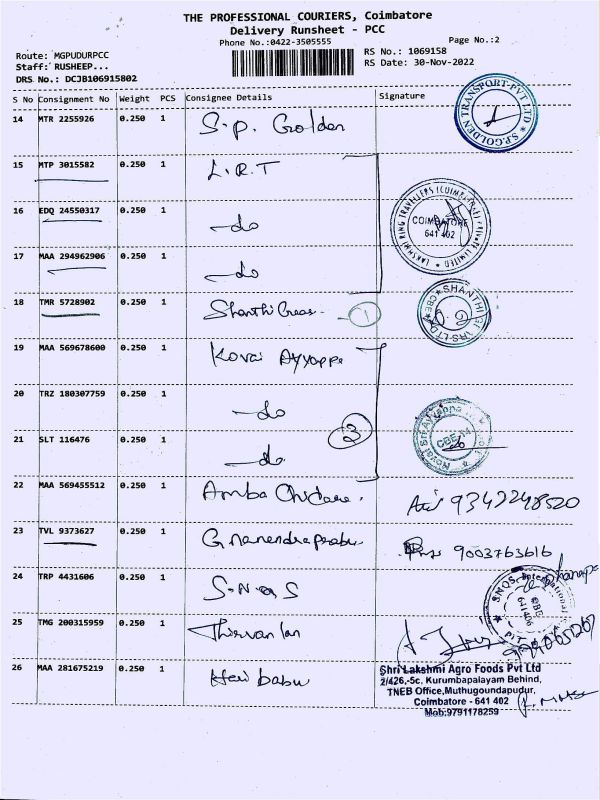 THE PROFESSIONAL COURIERS, Coimbatore
Delivery Runsheet - PCC
Phone No.:0422-3505555
Page No.:2
Route: MGPUDURPCC
RS No.: 1069158
Staff: RUSHEEP...
RS Date: 30-Nov-2022
DRS No.: DCJB106915802
S No Consignment No Weight PCS Consignee Details Signature
14 MTR 2255926 0.250 1 S.P. Golden
S.P.GOLDEN TRANSPORT-PVT LTD
15 MTP 3015582 0.250 1 L.R.T
16 EDQ 24550317 0.250 1 do
LAKSHMI RING TRAVELLERS (COIMBATORE) PRIVATE LIMITED
COIMBATORE
641 402
17 MAA 294962906 0.250 1 do
18 TMR 5728902 0.250 1 Shanthi Gears 1
SHANTHI GEARS LTD CBE
19 MAA 569678600 0.250 1 Kovai Ayyappa
20 TRZ 180307759 0.250 1 do
3
21 SLT 116476 0.250 1 do
CBE-14
22 MAA 569455512 0.250 1 Amba 9342248520
23 TVL 9373627 0.250 1 Gnanendraprabu 9003763616
24 TRP 4431606 0.250 1 S.N.Q.S
S.N.Q.S. International
CBE
641406
25 TMG 200315959 0.250 1
26 MAA 281675219 0.250 1 Hari babu
Shri Lakshmi Agro Foods Pvt Ltd
2/426,-5c, Kurumbapalayam Behind,
TNEB Office,Muthugoundapudur,
Coimbatore - 641 402
Mob:9791178259